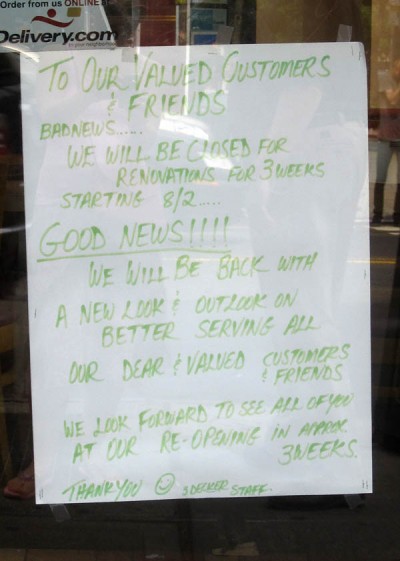 Order from us ONLINE
Delivery.com
in your neighborhood
TO OUR VALUED CUSTOMERS
& FRIENDS
BADNEWS.....
WE WILL BE CLOSED FOR
RENOVATIONS FOR 3 WEEKS
STARTING 8/2.....
GOOD NEWS!!!!
WE WILL BE BACK WITH
A NEW LOOK & OUTLOOK ON
BETTER SERVING ALL
OUR DEAR & VALUED CUSTOMERS
& FRIENDS
WE LOOK FORWARD TO SEE ALL OF YOU
AT OUR RE-OPENING IN APPROX.
3 WEEKS.
THANK YOU ☺ 3 DECKER STAFF.